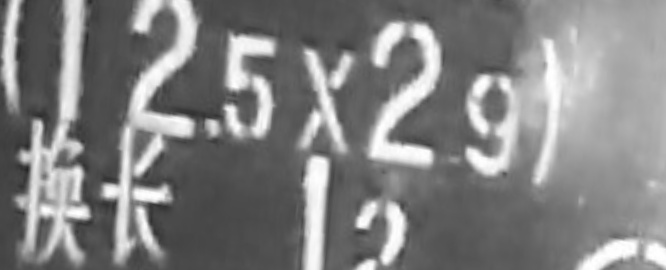 (12.5x2.9)
换长 1.2